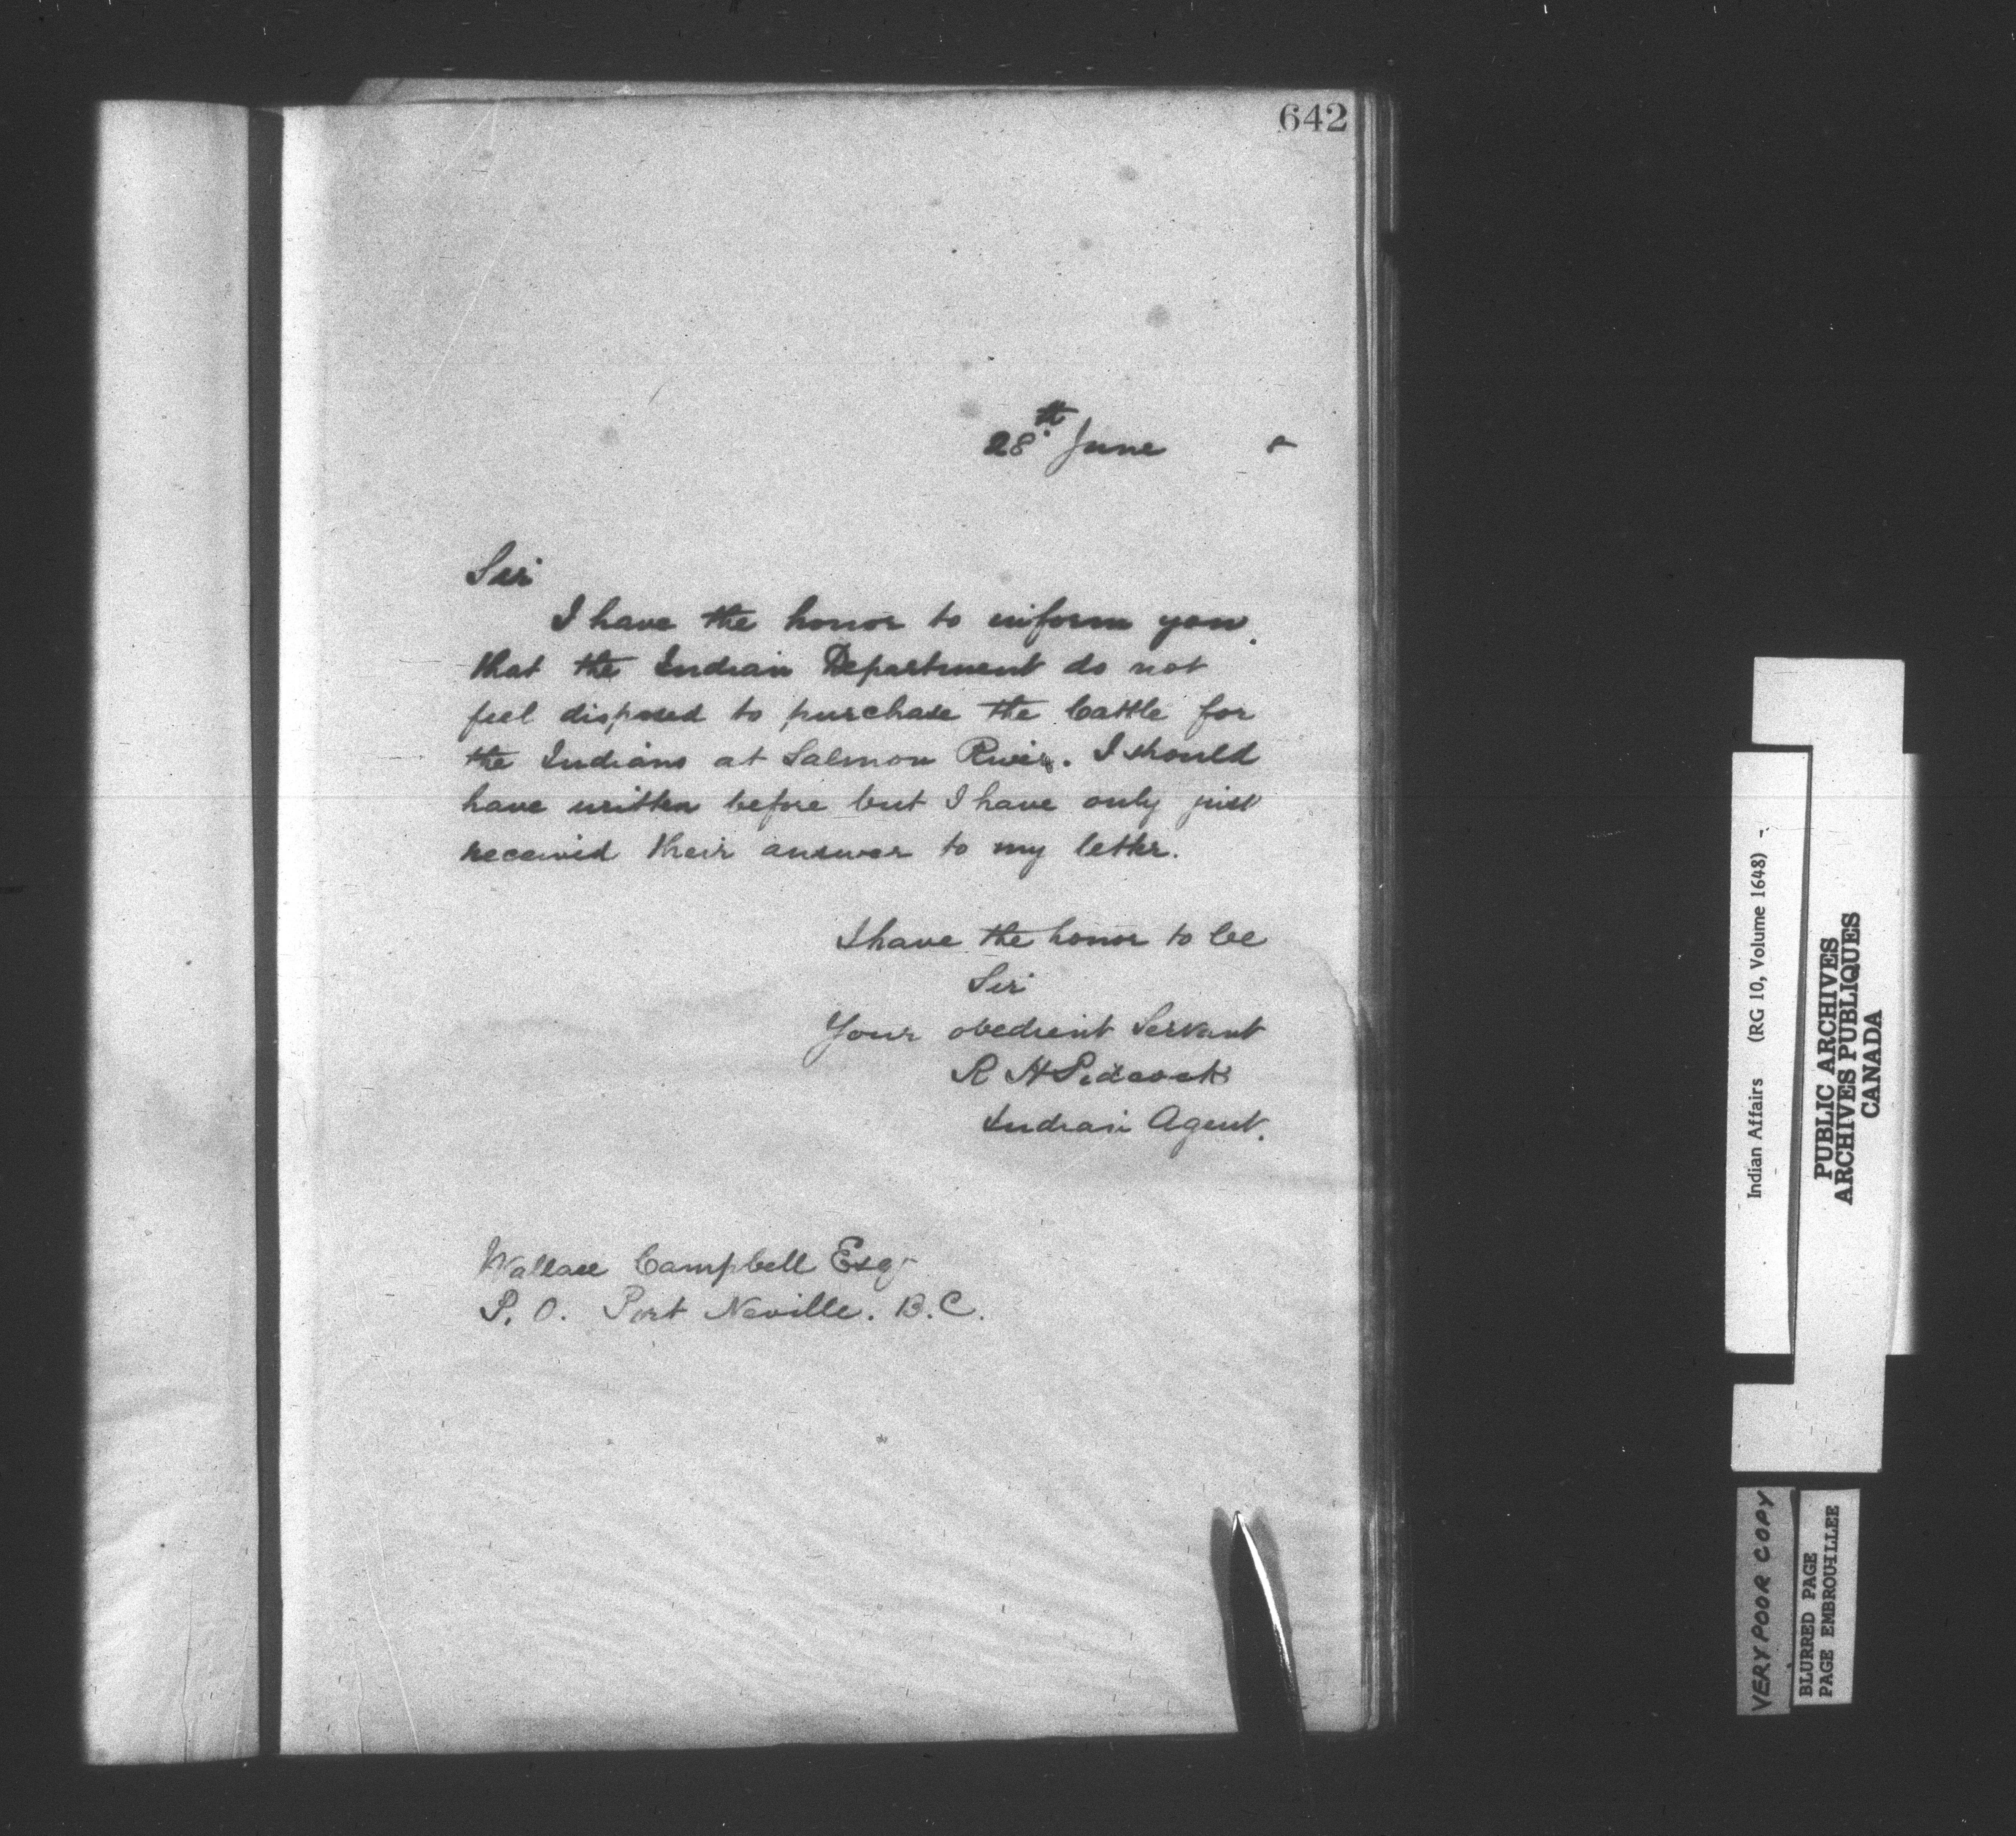 642
28th June
Sir
I have the honor to inform you
that the Indian Department do not
feel disposed to purchase the Cattle for
the Indians at Salmon River. I should
have written before but I have only just
received their answer to my letter.
I have the honor to be
Sir
Your obedient Servant
R H Pidcock
Indian Agent.
Wallace Campbell Esqr
P. O. Port Neville. B.C.
Indian Affairs (RG 10, Volume 1648)
PUBLIC ARCHIVES
ARCHIVES PUBLIQUES
CANADA
VERY POOR COPY
BLURRED PAGE
PAGE EMBROUILLEE